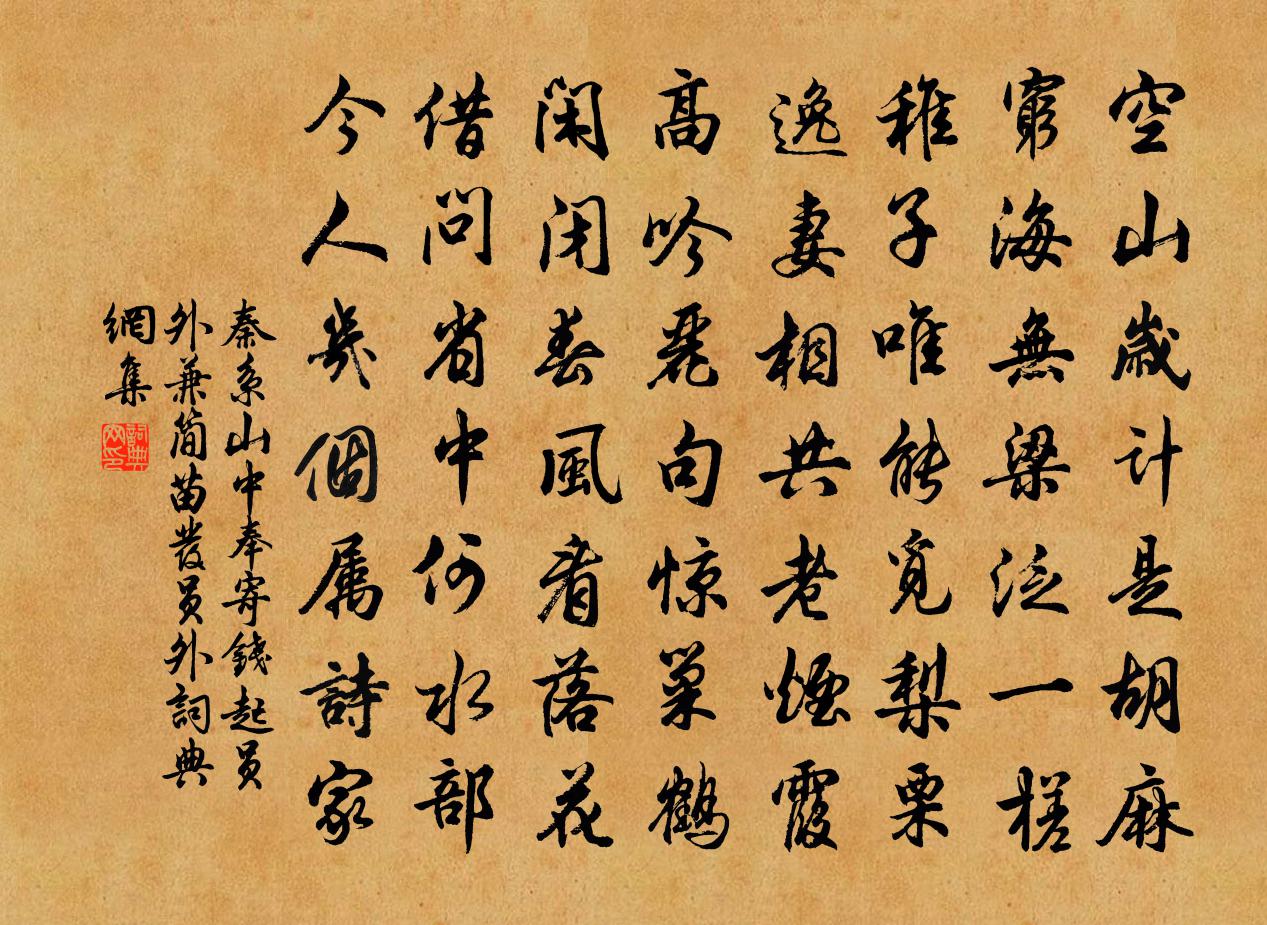 空山歲計是胡麻
窮海無梁泛一槎
稚子唯能覓梨栗
逸妻相共老煙霞
高吟麗句驚巢鶴
閑閉春風看落花
借問省中何水部
今人幾個屬詩家
秦系山中奉寄錢起員
外兼簡苗發員外詞典
網集
詞典
網印